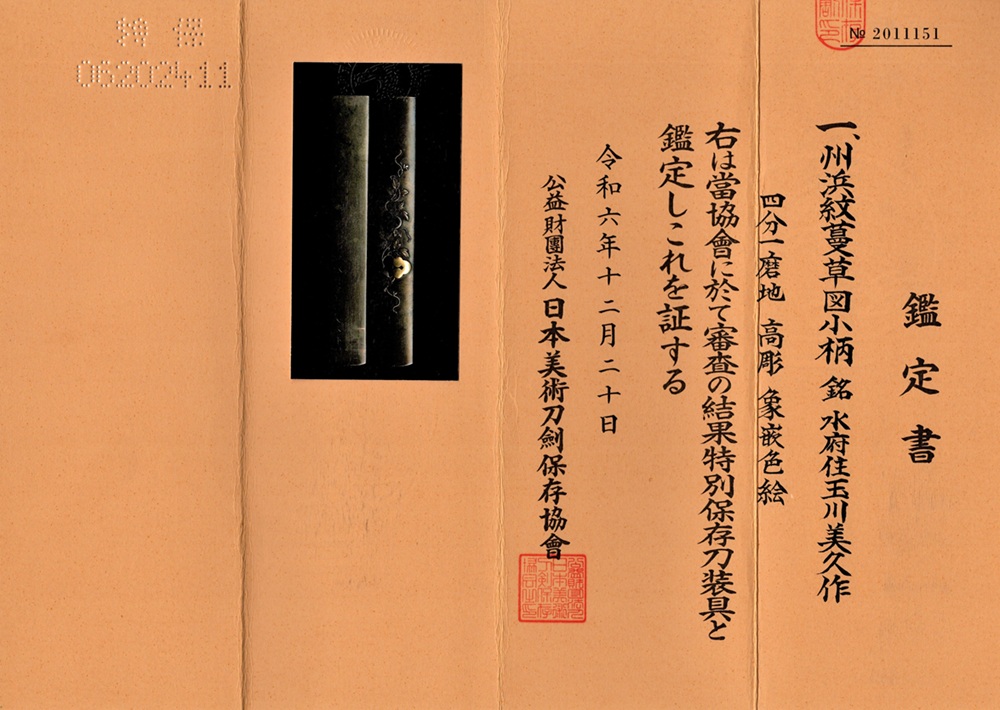 № 2011151
鑑定書
一、州浜紋蔓草図小柄 銘 水府住玉川美久作
四分一磨地 高彫 象嵌色絵
右は當協會に於て審査の結果特別保存刀装具と
鑑定しこれを証する
令和六年十二月二十日
公益財團法人 日本美術刀劍保存協會
06202411